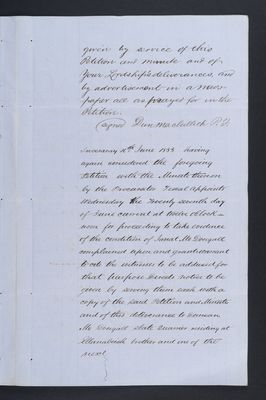 given by service of this
Petition and minute and of
Your Lordship's deliverances, and
by advertisement in a News-
paper all as prayed for in the
Petition.
(signed) Dun. MacCulloch P.F.
Inveraray 16th June 1855 having
again considered the foregoing
Petition with the Minute thereon
by the Procurator Fiscal Appoints
Wednesday the Twenty seventh day
of June current at twelve o'clock
noon for proceeding to take evidence
of the condition of Janet McDougall
complained upon and grants warrant
to cite the witnesses to be adduced for
that purpose Directs notice to be
given by serving them each with a
copy of the said Petition and Minute
and of this deliverance to Duncan
McDougall slate Quarrier residing at
brother and one of the
next